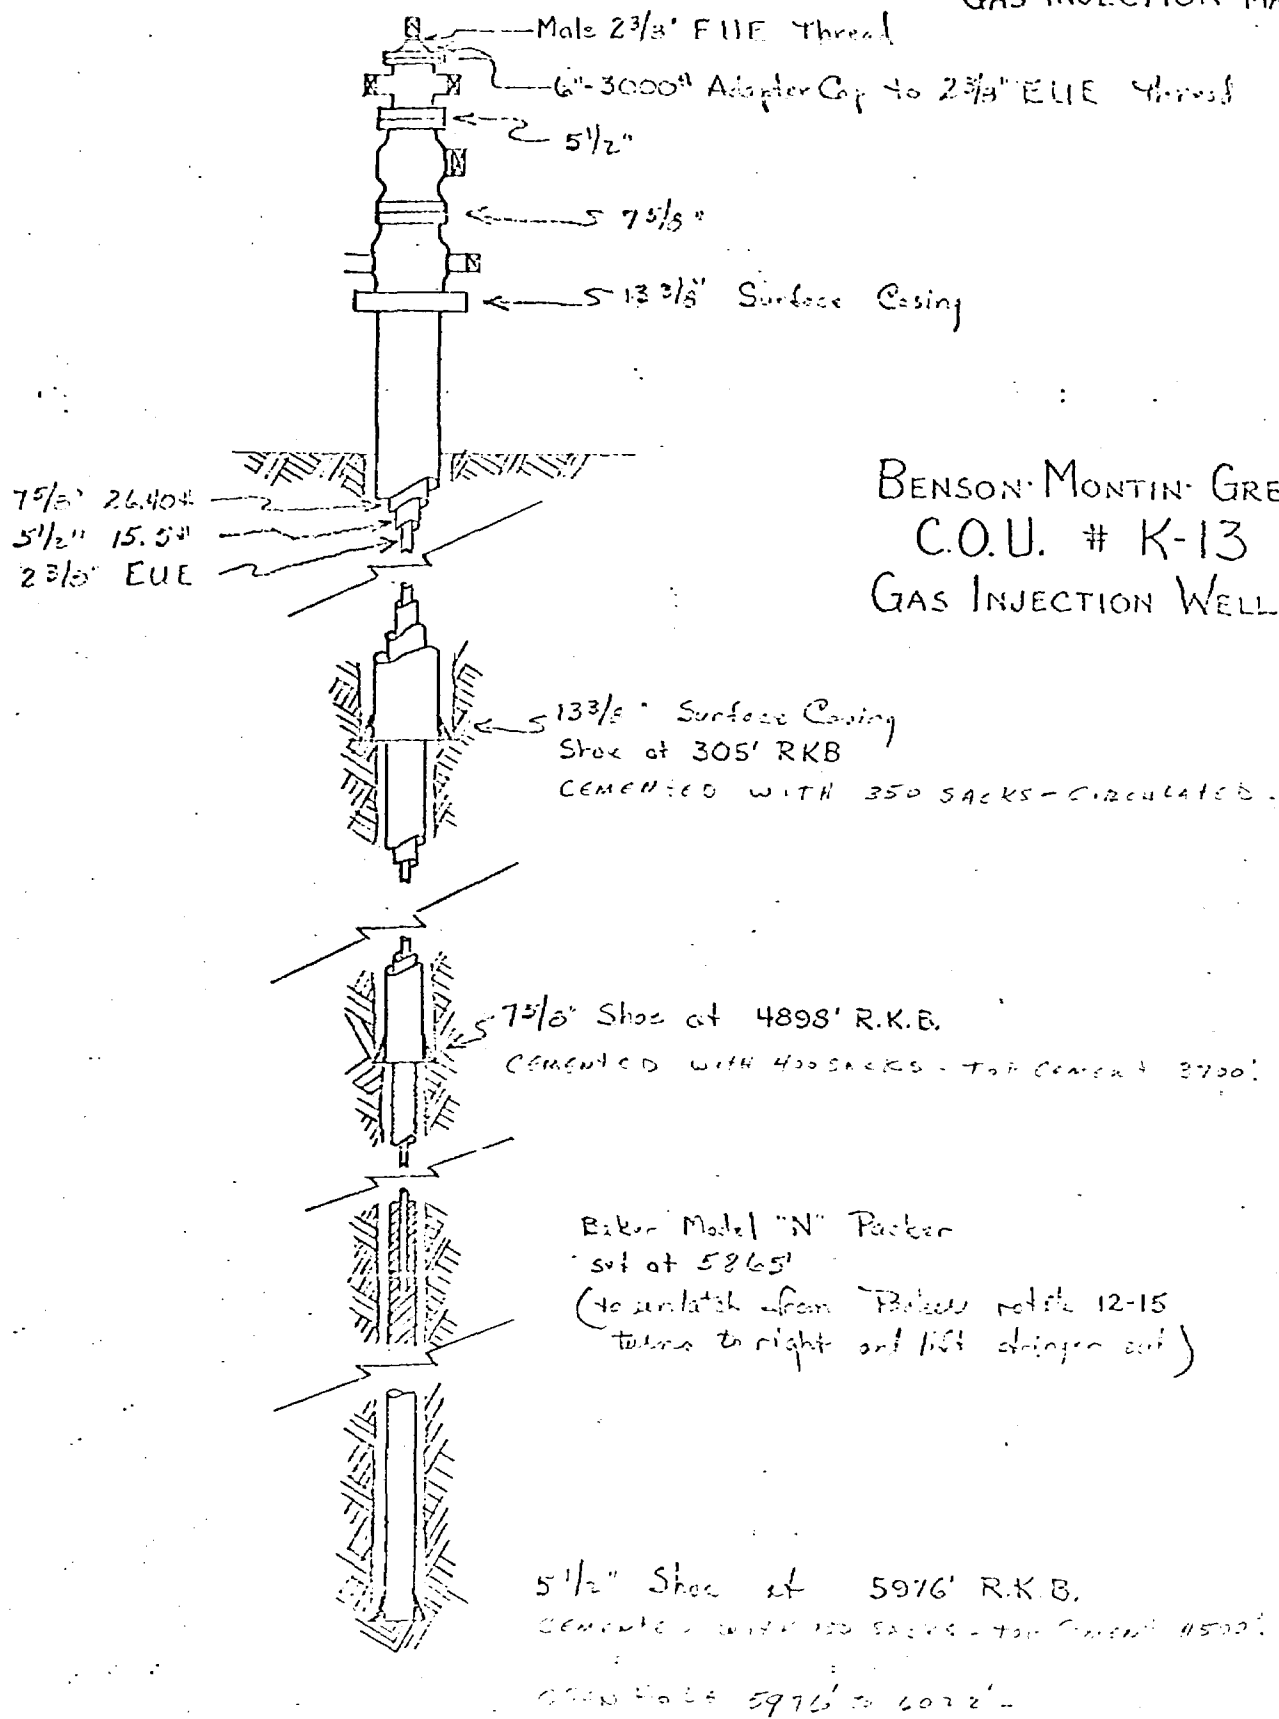 GAS INJECTION
Male 2 3/8" EUE Thread
6"-3000# Adapter Cap to 2 3/8" EUE Thread
5 1/2"
7 5/8"
13 3/8" Surface Casing
7 5/8" 26.40#
5 1/2" 15.5#
2 3/8" EUE
BENSON-MONTIN-GRE
C.O.U. # K-13
GAS INJECTION WELL
13 3/8" Surface Casing
Shoe at 305' RKB
CEMENTED WITH 350 SACKS - CIRCULATED.
7 5/8" Shoe at 4898' R.K.B.
CEMENTED WITH 400 SACKS - TOP CEMENT 3700'.
Baker Model "N" Packer
set at 5865'
(to unlatch from Packer rotate 12-15
turns to right and lift stringer out)
5 1/2" Shoe at 5976' R.K.B.
CEMENTED WITH SACKS - TOP CEMENT 4500'.
OPEN HOLE 5976' TO 6022'-